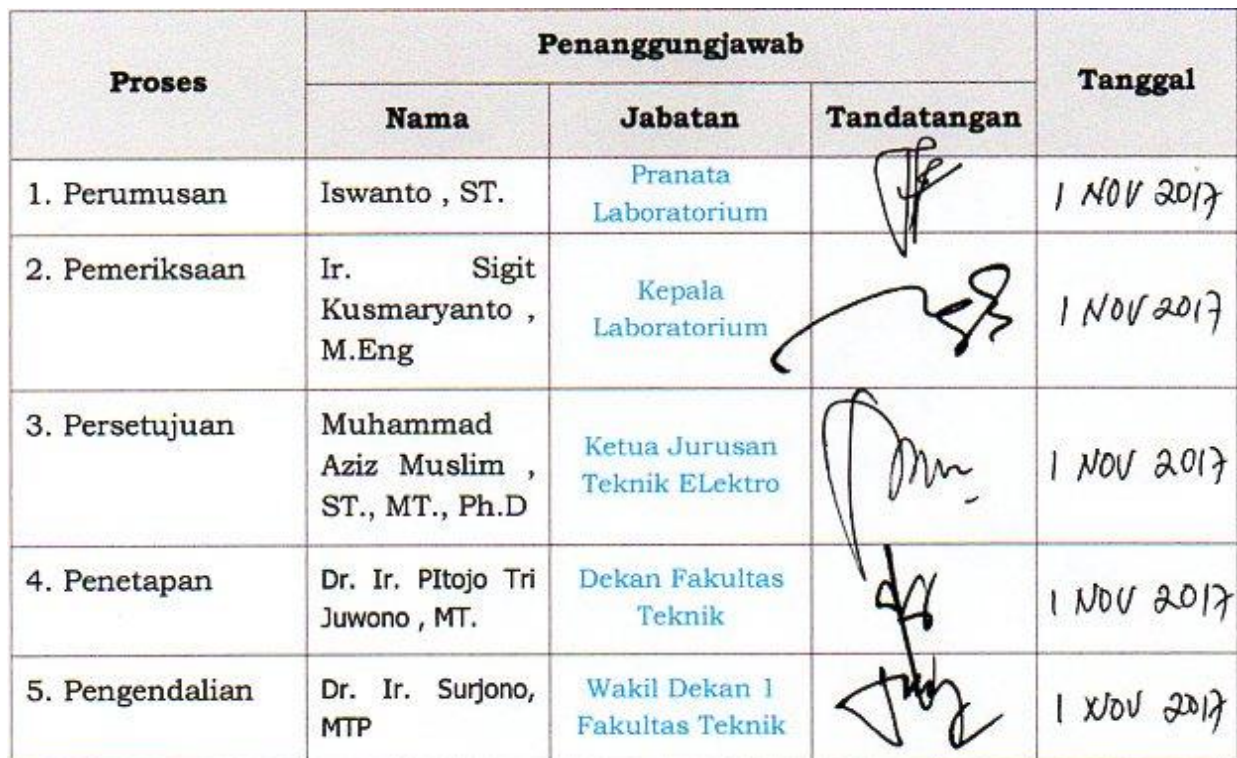 Proses
Penanggungjawab
Tanggal
Nama
Jabatan
Tandatangan
1. Perumusan
Iswanto , ST.
Pranata
Laboratorium
1 NOV 2017
2. Pemeriksaan
Ir. Sigit
Kusmaryanto ,
M.Eng
Kepala
Laboratorium
1 NOV 2017
3. Persetujuan
Muhammad
Aziz Muslim ,
ST., MT., Ph.D
Ketua Jurusan
Teknik ELektro
1 NOV 2017
4. Penetapan
Dr. Ir. PItojo Tri
Juwono , MT.
Dekan Fakultas
Teknik
1 NOV 2017
5. Pengendalian
Dr. Ir. Surjono,
MTP
Wakil Dekan 1
Fakultas Teknik
1 NOV 2017